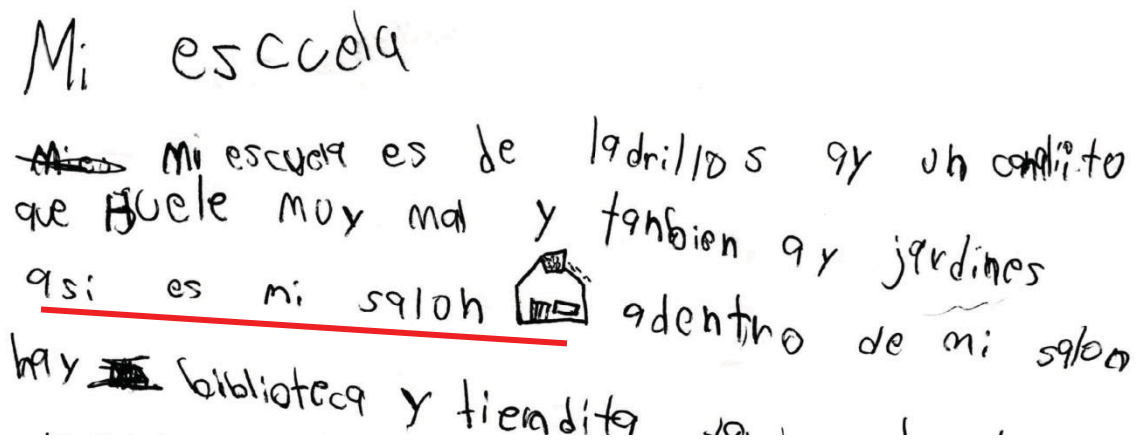 Mi escuela
mi escuela es de ladrillos ay un
que Huele muy mal y tanbien ay jardines
asi es mi salon adentro de mi salon
hay biblioteca y tiendita